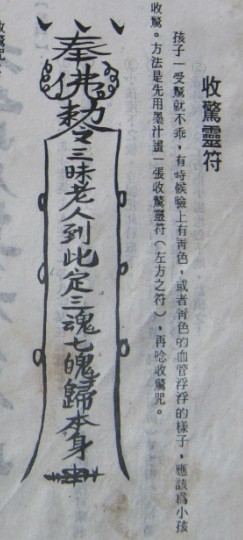 收驚靈符
孩子一受驚就不乖，有時候臉上有青色，或者青色的血管浮浮的樣子，應該為小孩
收驚。方法是先用墨汁畫一張收驚靈符（左方之符），再唸收驚咒。
奉佛敕令三昧老人到此定三魂七魄歸本身
收驚咒